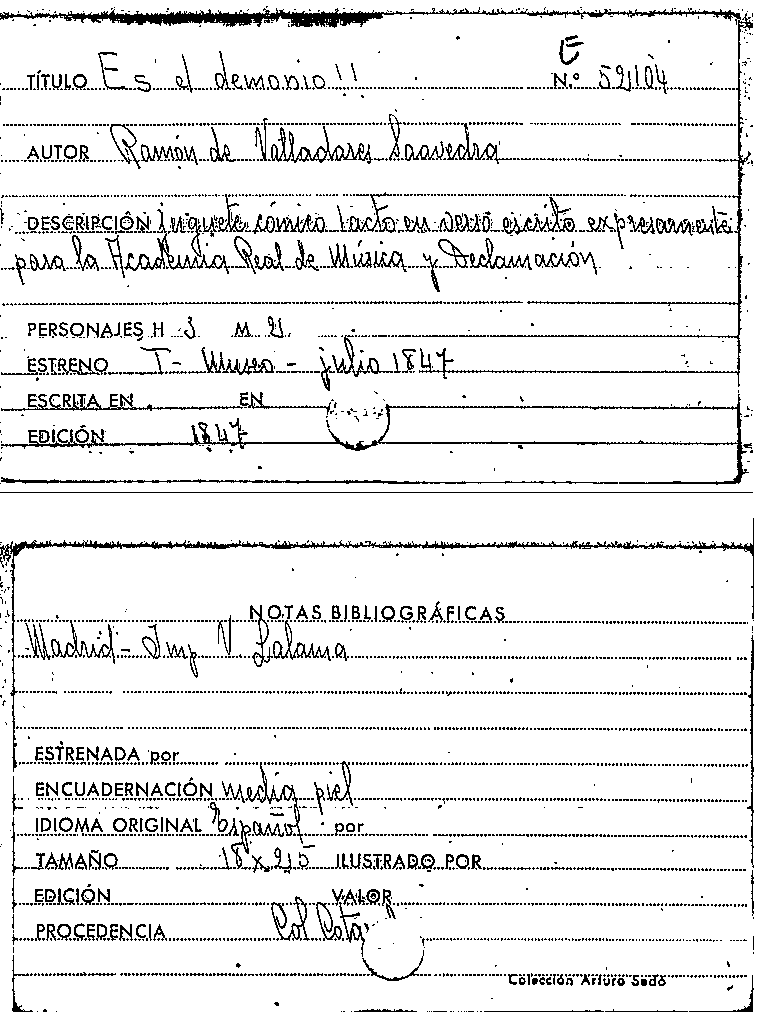 E
TÍTULO Es el demonio!! N.º 52104
AUTOR Ramón de Valladares Saavedra
DESCRIPCIÓN juguete cómico 1 acto en verso escrito expresamente
para la Academia Real de Música y Declamación
PERSONAJES H 3 M 2
ESTRENO T- Museo - julio 1847
ESCRITA EN EN
EDICIÓN 1847
NOTAS BIBLIOGRÁFICAS
Madrid - Imp V Lalama
ESTRENADA por
ENCUADERNACIÓN media piel
IDIOMA ORIGINAL Español por
TAMAÑO 18 x 25 ILUSTRADO POR
EDICIÓN VALOR
PROCEDENCIA Col
Colección Arturo Sedó